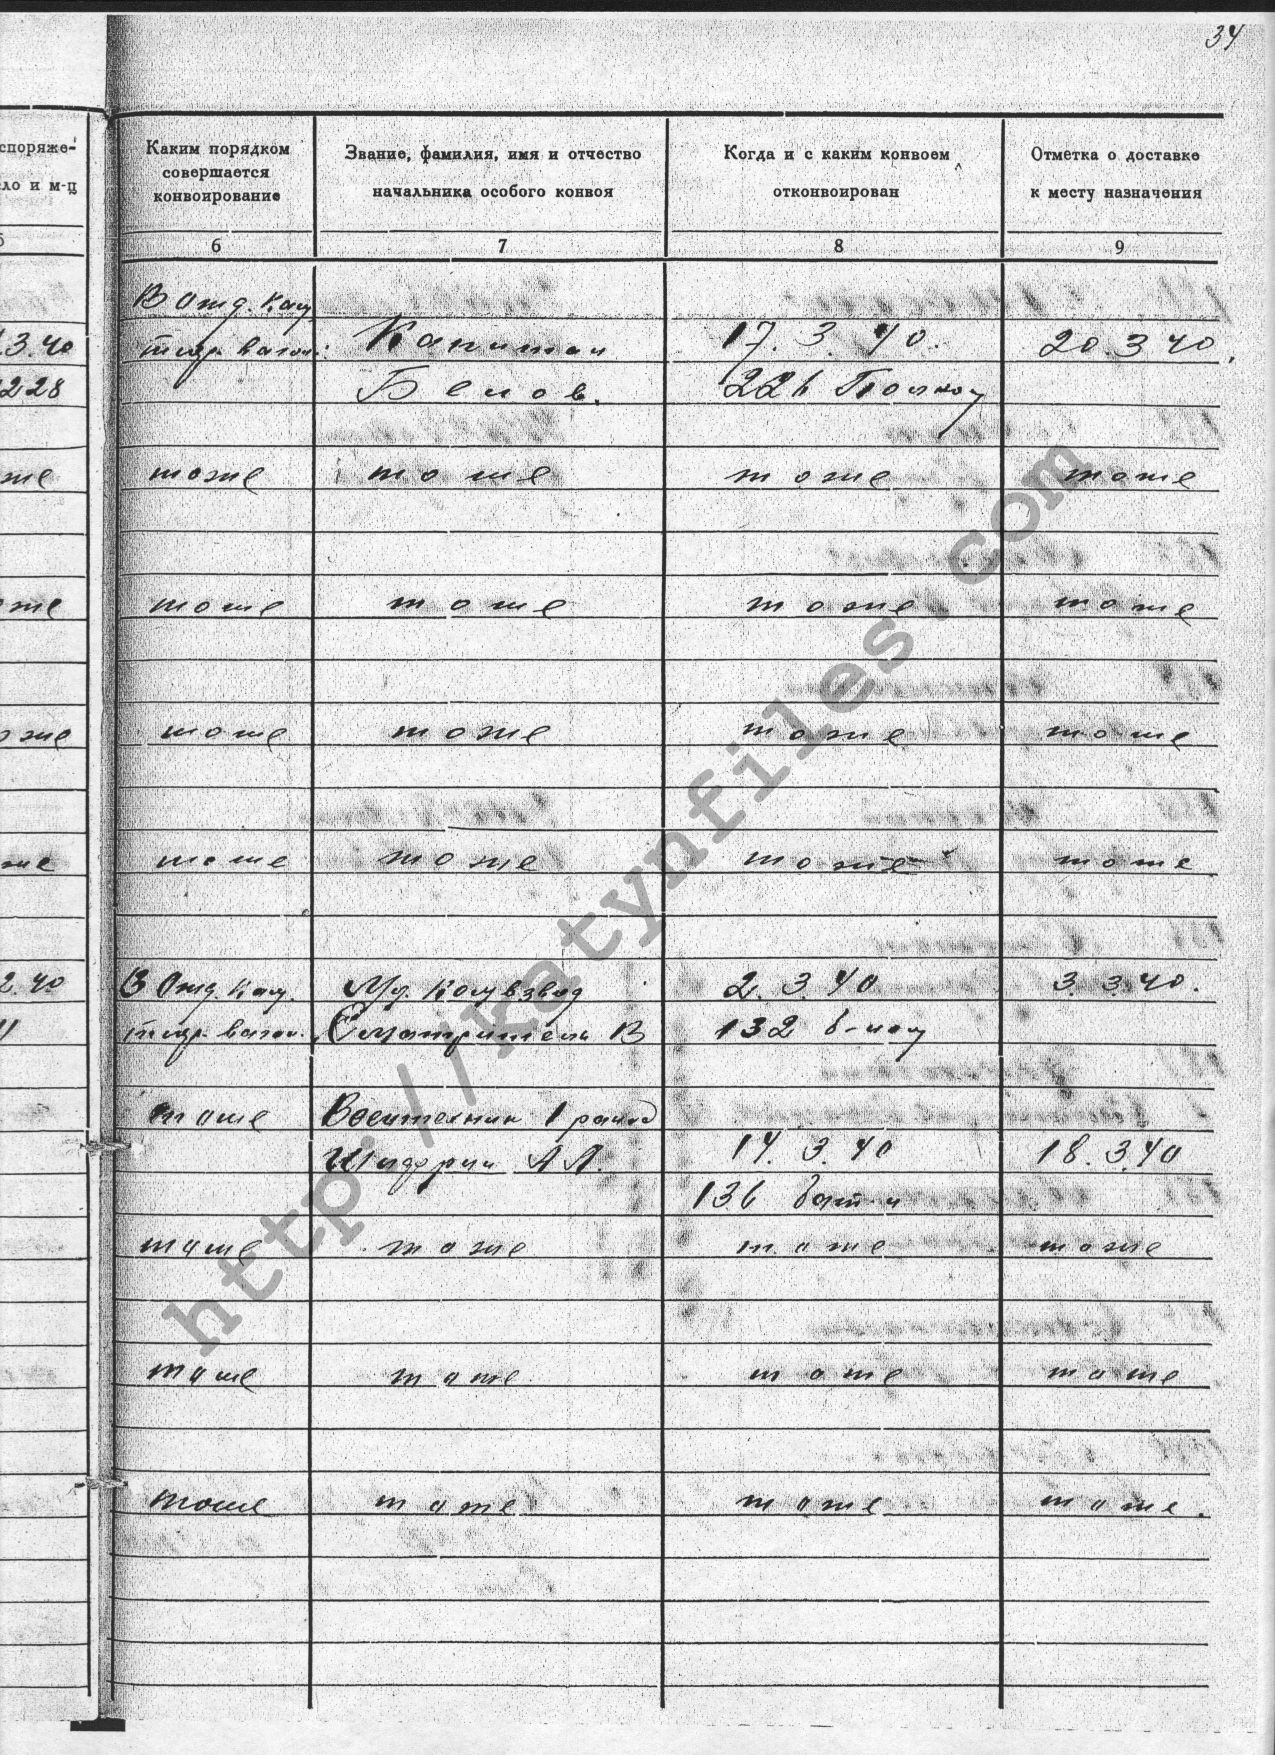 34
споряже-
ло и м-ц
5
Каким порядком
совершается
конвоирование
Звание, фамилия, имя и отчество
начальника особого конвоя
Когда и с каким конвоем
отконвоирован
Отметка о доставке
к месту назначения
6 7 8 9
В отд. кац
3.40 тюр. вагон. Капитан 17. 3. 40. 20. 3 40.
228 Белов. 226 Полком
же тоже тоже тоже тоже
же тоже тоже тоже тоже
оже тоже тоже тоже тоже
же тоже тоже тоже тоже
2.40 В Отд. кац. Мл. Комвзвод 2. 3. 40 3. 3. 40.
тюр. вагон. Смотритель В 132 б-ном
тоже Воентехник 1 ранга
А Л. 14. 3. 40 18. 3.40
136 бат-н
тоже тоже тоже тоже
тоже тоже тоже тоже
тоже тоже тоже тоже.
http://katynfiles.com